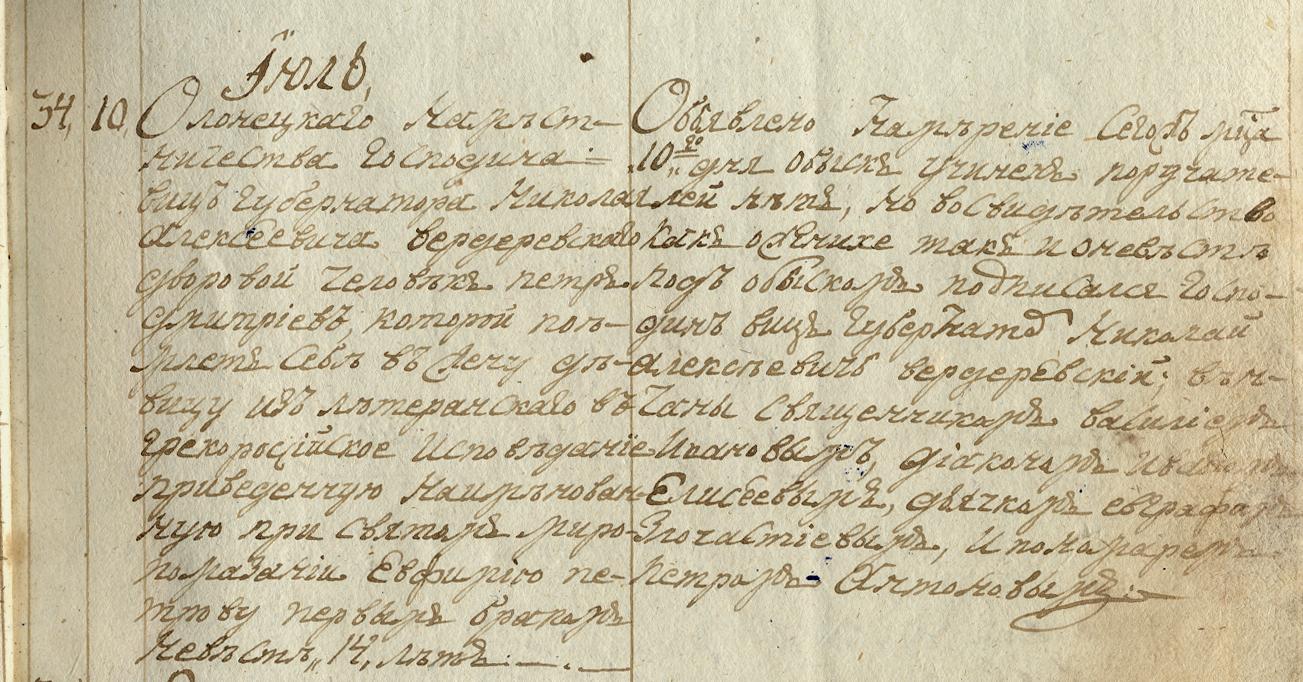 Іюль,
34, 10, Олонецкаго намѣст-
ничества Господина
вицъ Губернатора Николая
Алексеевича вердеревскаго
дворовой человѣкъ петръ
дмитріевъ, которой поѣ-
млетъ себѣ въ жену дѣ-
вицу изъ лютеранскаго въ
грекоросійское исповѣданіе
приведенную наимѣнован-
ную при святомъ миро-
помазаніи Евфимію пе-
трову первымъ бракомъ
невѣстѣ „14, лѣтъ
Объявлено намѣреніе сегожъ мца
10го дня обыскъ учиненъ поручате-
лей нѣтъ, но во свидѣтельство
какъ о женихе такъ и о невѣстѣ
подъ обыскомъ подписался Госпо-
динъ вицъ Губернато Николай
алексѣевичъ вердеревскій; вѣн-
чаны священникомъ василіемъ
Ивановымъ, діакономъ Иваномъ
Елисеевымъ, дьячкомъ евграфомъ
Злочастіевымъ, и пономаремъ
Петромъ Антоновымъ